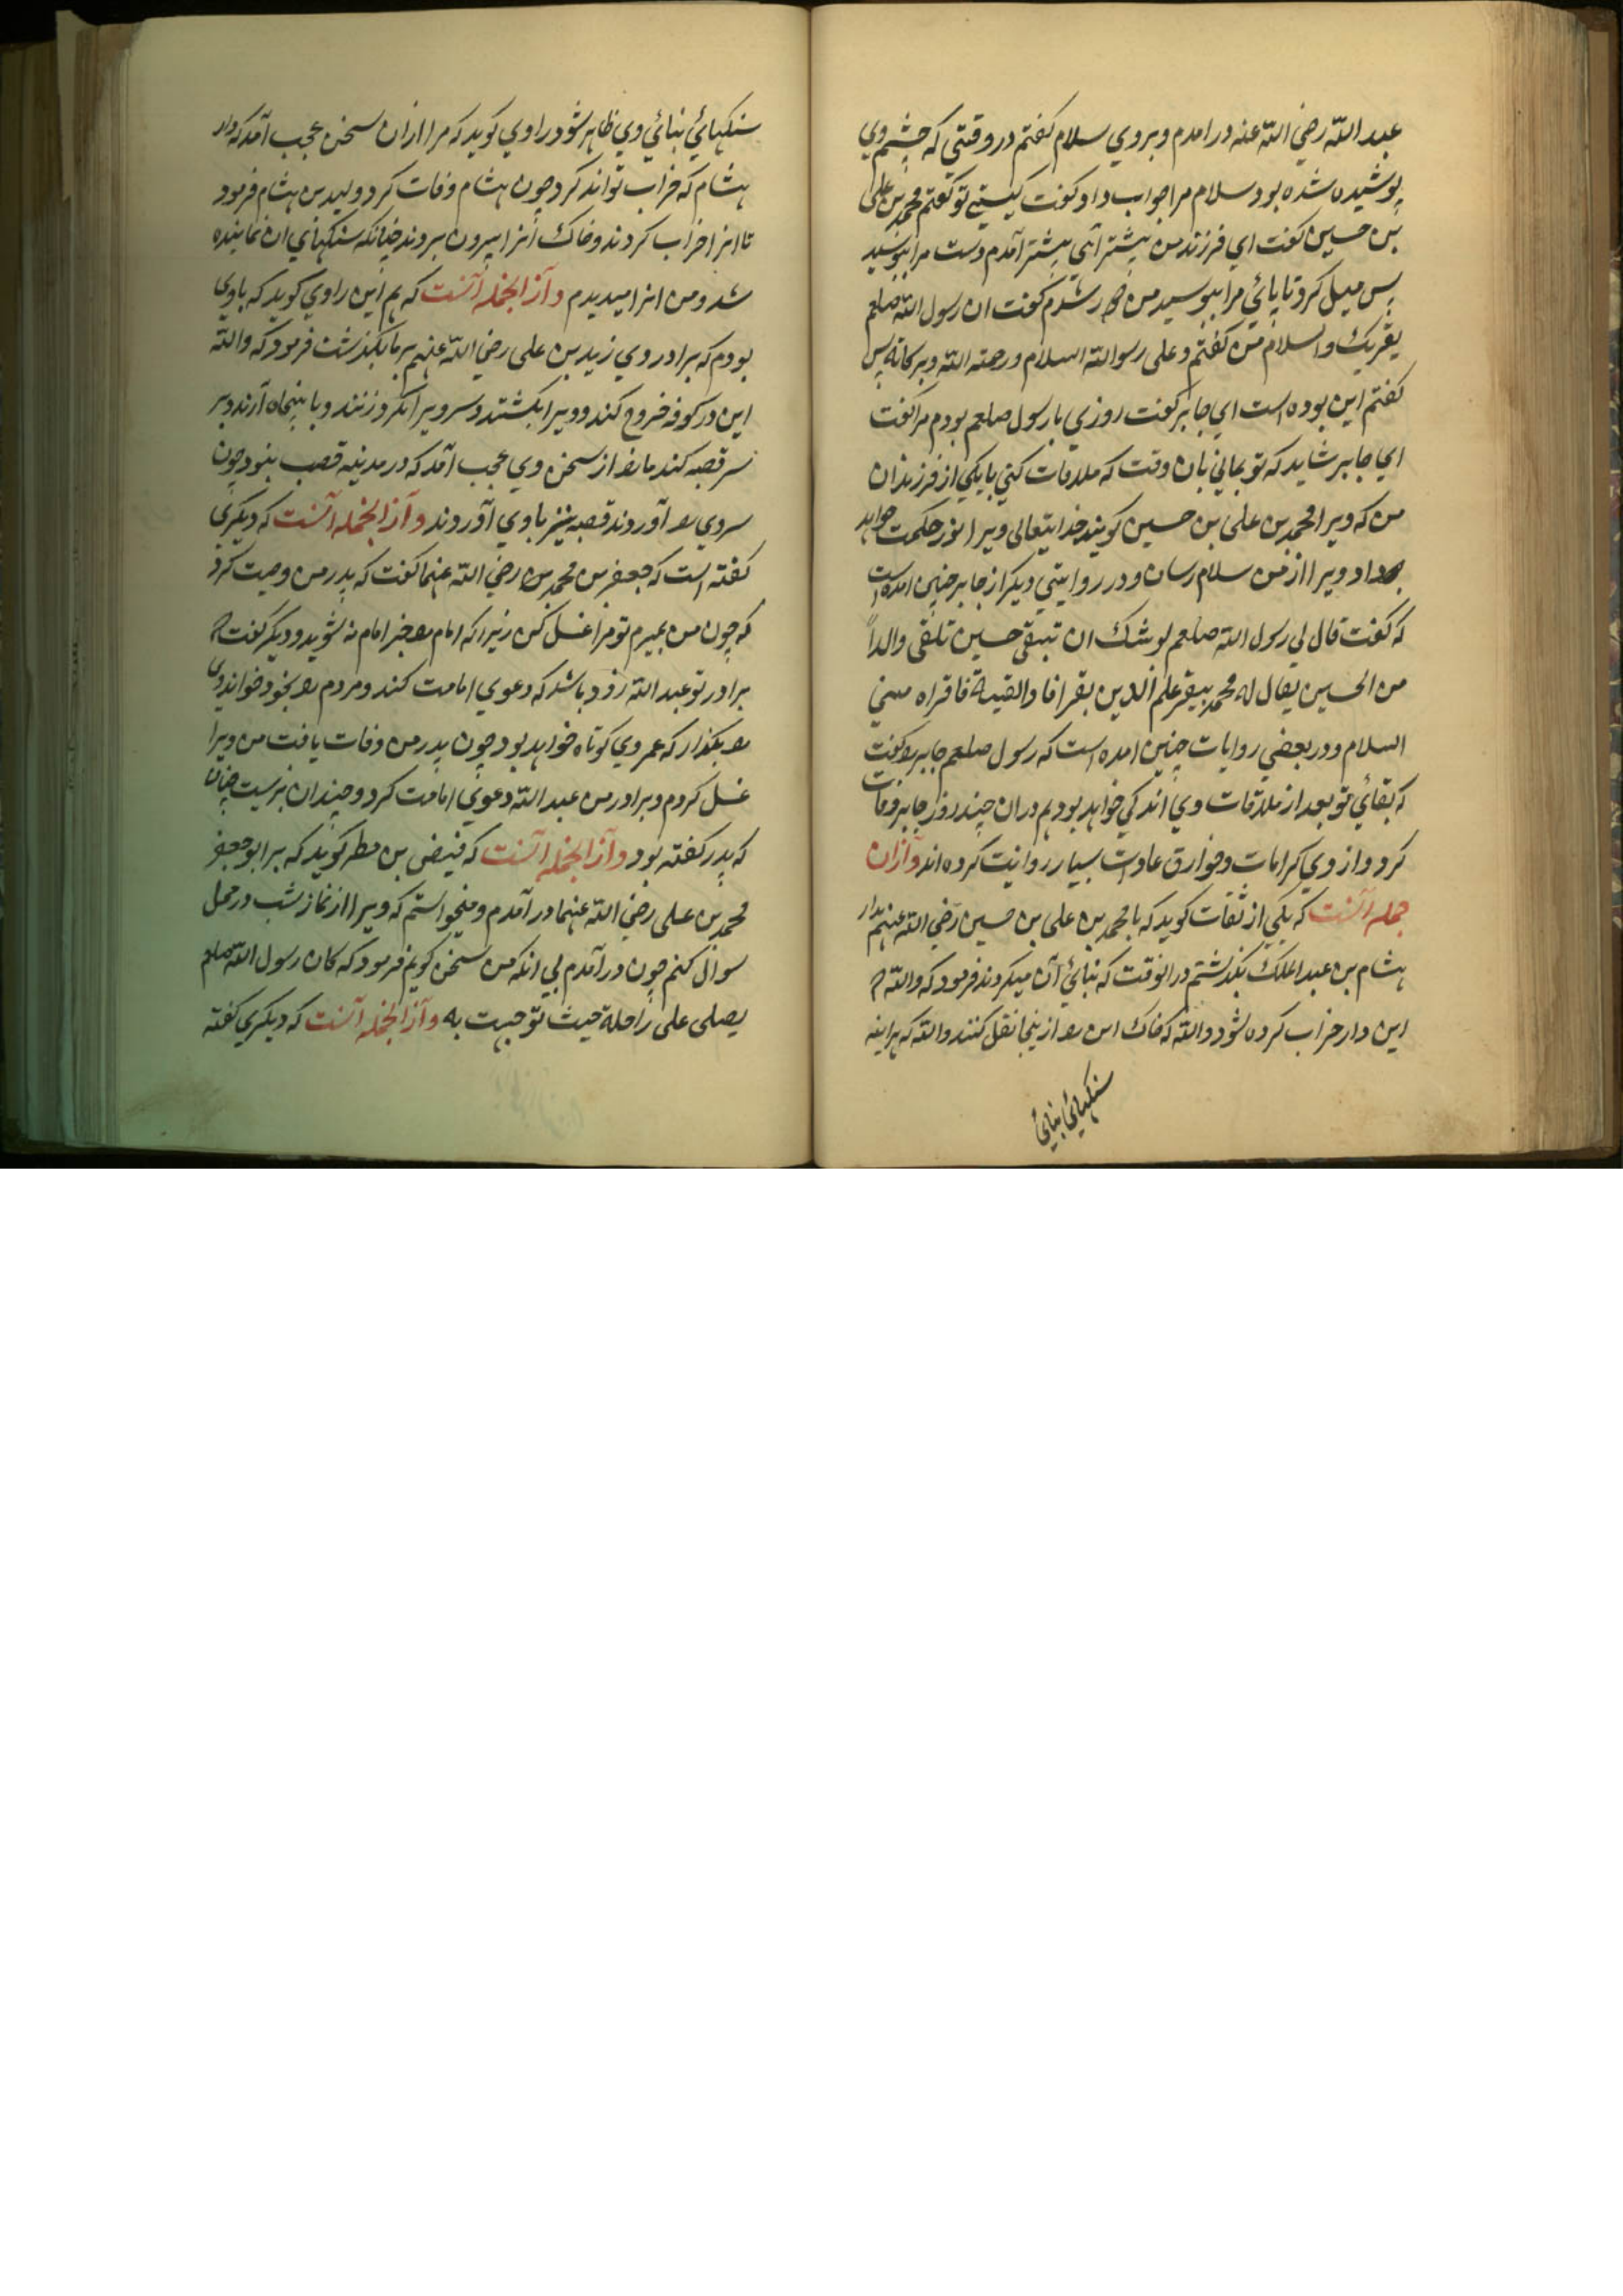 عبد اللّه رضي اللّه عنه در امدم وبروي سلام كفتم دروقتي كه چشم وي
پوشيده شده بود سلام مرا جواب داد وكفت كيستي تو كفتم محمد بن على
بن حسين كفت اي فرزند من پيشتر آئي پيشتر آمدم دست مرا ببوسيد
پس ميل كرد تا پائي مرا ببوسيد من دور شدم كفت ان رسول اللّه صلعم
يقريك والسلام من كفتم وعلى رسوالله السلام ورحمته اللّه وبركاته پس
كفتم اين بوده است اي جابر كفت روزي با رسول صلعم بودم مرا كفت
اي جابر شايد كه تو بماني بان وقت كه ملاقات كني با يكي از فرزندان
من كه ويرا محمد بن على بن حسين كويند خدايتعالى ويرا نور حكمت خواهد
داد ويرا از من سلام رسان ودر روايتي ديكر از جابر چنين امده است
كه كفت قال لي رسول اللّه صلعم لوشك ان تبقى حسين تلقى والداً
من الحسين يقال له محمد يبقر علم الدين بقرا فا والقيه فاقراه مني
السلام ودر بعضي روايات چنين امده است كه رسول صلعم جابر را كفت
كه بقائي تو بعد از ملاقات وي اندكي خواهد بود هم دران چند روز جابر وفات
كرد واز وي كرامات وخوارق عادات بسيار روايت كرده اند وآزان
جمله آنست كه يكي از ثقات كويد كه با محمد بن على بن حسين رضي اللّه عنهم بدار
هشام بن عبد الملك بكذشتم درانوقت كه بنائي آن ميكردند فرمود كه واللّه كه
اين دار خراب كرده شود واللّه كه خاك اين را ازينجا نقل كنند واللّه كه هراينه
سنكهائي بنائي
سنكهائي بنائي وي ظاهر شود راوي كويد كه مرا ازان سخن عجب آمد كه دار
هشام كه خراب تواند كرد چون هشام وفات كرد وليد بن هشام فرمود
تا انرا خراب كردند وخاك انرا بيرون بردند چنانكه سنكهاي ان نماينده
شد ومن انرا ميديدم وآز الجمله آنست كه هم اين راوي كويد كه باوي
بودم كه برادر وي زيد بن على رضي اللّه عنهم برما بكذشت فرمود كه واللّه
اين در كوفه خروج كند وويرا بكشتند وسر ويرا بكردزنند وبا ينجاه آرند وبر
سر قصبه كند مارا از سخن وي عجب آمد كه در مدينه قصب نبود چون
سر وي را آوردند قصبه نيز باوي آوردند وآز الجمله آنست كه ديكري
كفته است كه جعفر بن محمد بن رضي اللّه عنهما كفت كه پدر من وصيت كرد
كه چون من بميرم تو مرا غسل كن زيراكه امام را جز امام نه شويد وديكر كفت كه
برادر تو عبد اللّه زود باشد كه دعوي امامت كند ومردم را بخود خواند وي
را بكذار كه عمر وي كوتاه خواهد بود چون پدر من وفات يافت من ويرا
غسل كردم وبرادر من عبد اللّه دعوي امامت كرد وچندان بزيست چنان
كه پدر كفته بود وآز الجمله آنست كه فيض بن مطر كويد كه برابو جعفر
محمد بن على رضي اللّه عنهما در آمدم وميخواستم كه ويرا از نماز شب در محمل
سوال كنم چون درآمدم بي انكه من سخن كويم فرمود كه كان رسول اللّه صلعم
يصلى على راحلة حيث توجهت به وآز الجمله آنست كه ديكري كفته